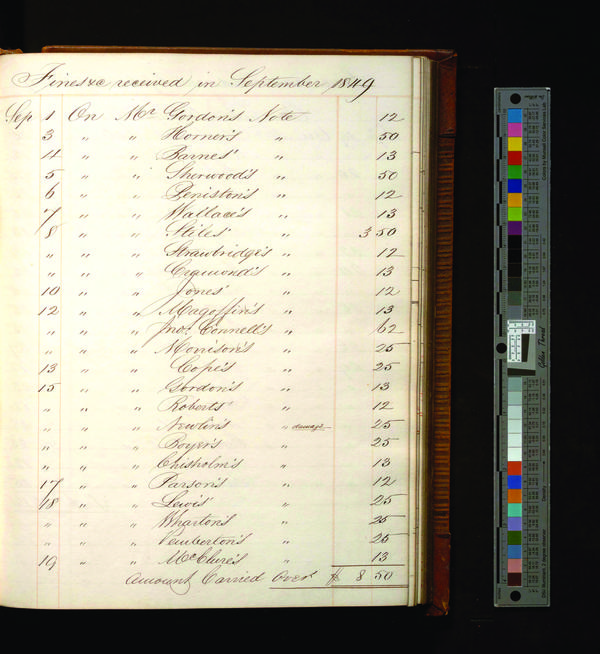 Fines &c received in September 1849
Sep 1 On Mr Gordon's Note 12
3 " " Horner's " 50
4 " " Barnes' " 13
5 " " Sherwood's " 50
6 " " Peniston's " 12
7 " " Wallace's " 13
8 " " Stiles' " 3 50
" " " Strawbridge's " 12
" " " Crgmond's " 13
10 " " Jones' " 12
12 " " Magoffin's " 13
" " " Jno. Connell's " 62
" " " Morrison's " 25
13 " " Cope's " 25
15 " " Gordon's " 13
" " " Roberts' " 12
" " " Newlin's " damage 25
" " " Boyer's " 25
" " " Chisholm's " 13
17 " " Parson's " 12
18 " " Lewis' " 25
" " " Wharton's " 25
" " " Pemberton's " 25
19 " " McClure's " 13
Amount Carried Over $ 8 50
Golden Thread